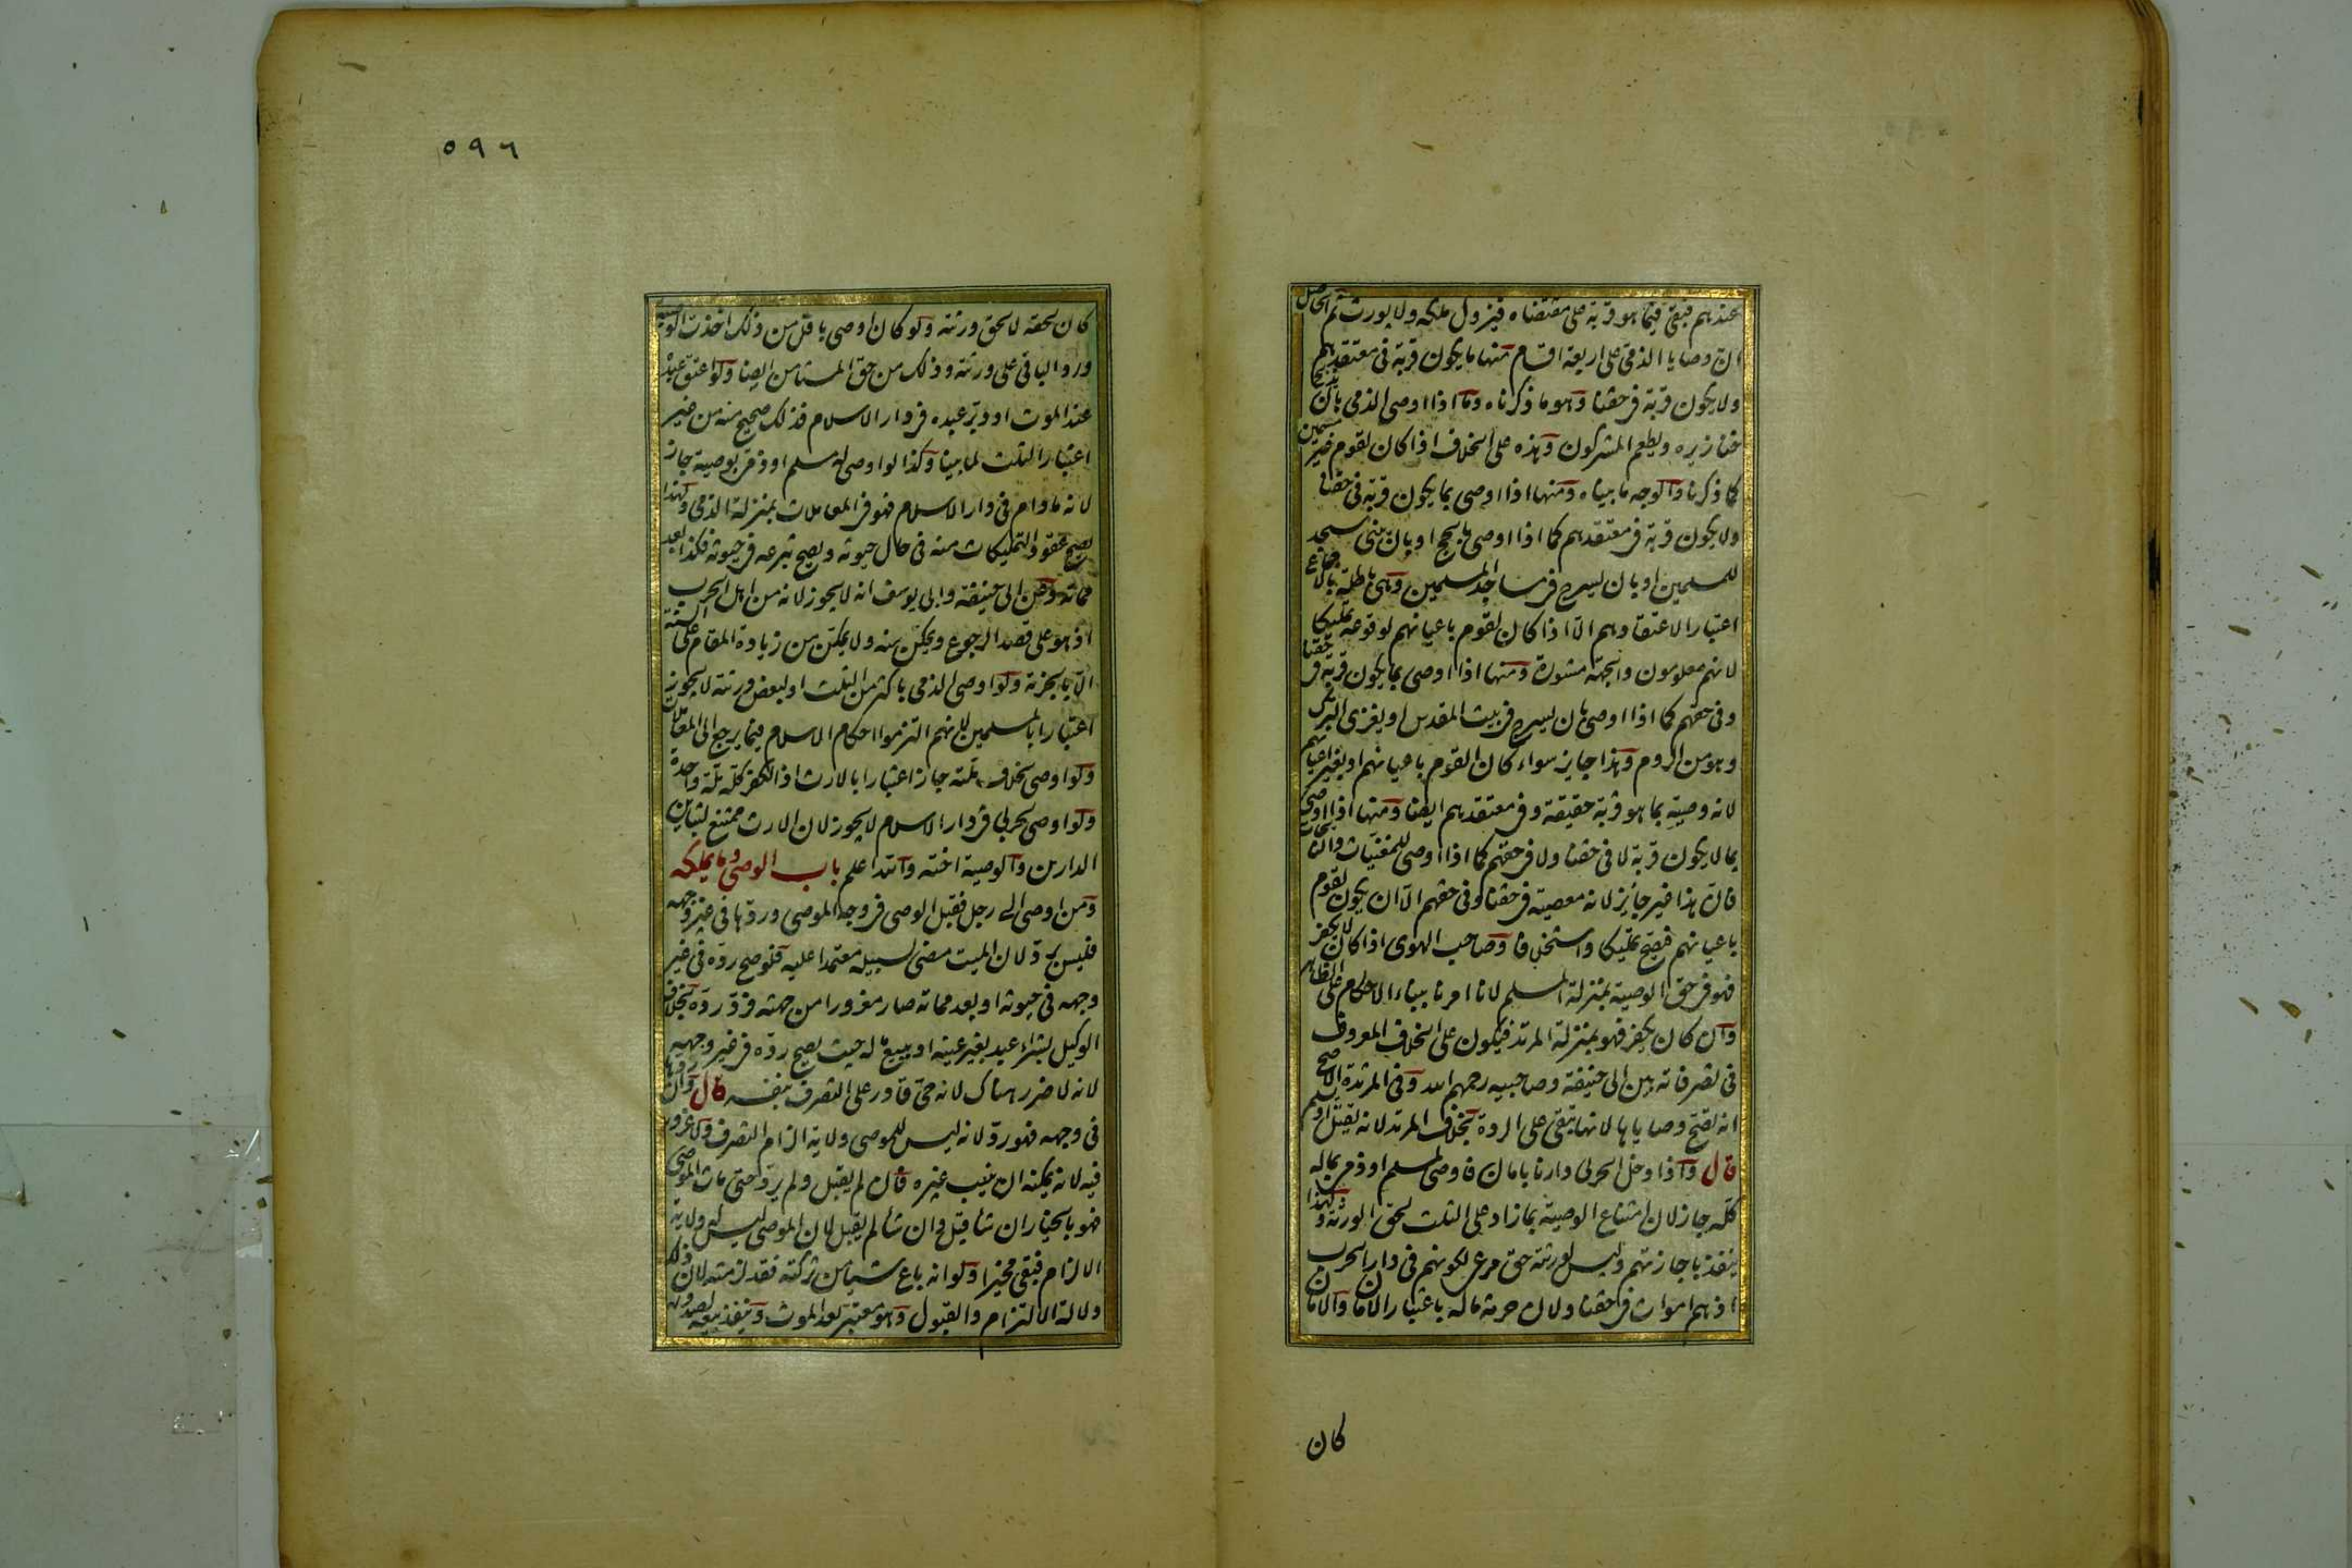 عندهم فبقي فيما هو قربة على مقتضاه فيزول ملكه ولا يورث ثم الحاصل
ان وصايا الذمي على اربعة اقسام منها ما يكون قربة في معتقدهم
ولا يكون قربة في حقنا وهو ما ذكرناه وما اذا اوصى الذمي بان يذبح
خنازيره ويطعم المشركون وهذه على الخلاف اذا كان لقوم غير مسمين
كما ذكرنا والوجه ما بيناه ومنها اذا اوصى بما يكون قربة في حقنا
ولا يكون قربة في معتقدهم كما اذا اوصى بالحج او بان يبنى مسجد
للمسلمين او بان يسرج في مساجد المسلمين وهي باطلة بالاجماع
اعتبارا لاعتقادهم الا اذا كان لقوم باعيانهم لوقوعه تمليكا
لانهم معلومون والجهة مشورة ومنها اذا اوصى بما يكون قربة في حقنا
وفي حقهم كما اذا اوصى بان يسرج في بيت المقدس او يغزى الترك
وهو من الروم وهذا جايز سواء كان القوم باعيانهم او بغير اعيانهم
لانه وصية بما هو قربة حقيقة وفي معتقدهم ايضا ومنها اذا اوصى
بما لا يكون قربة لا في حقنا ولا في حقهم كما اذا اوصى للمغنيات والنائحات
فان هذا غير جائز لانه معصية في حقنا وفي حقهم الا ان يكون لقوم
باعيانهم فيصح تمليكا واستخلافا وصاحب الهوى اذا كان لا يكفر
فهو في حق الوصية بمنزلة المسلم لانا امرنا ببناء الاحكام على الظاهر
وان كان يكفر فهو بمنزلة المرتد فيكون على الخلاف المعروف
في تصرفاته بين ابي حنيفة وصاحبيه رحمهم الله وفي المرتدة الاصح
انه تصح وصاياها لانها تبقى على الردة بخلاف المرتد لانه يقتل او يسلم
قال واذا دخل الحربي دارنا بامان فاوصى لمسلم او ذمي بماله
كله جاز لان امتناع الوصية بما زاد على الثلث لحق الورثة ولهذا
ينفذ باجازتهم وليس لورثته حق مرعي لكونهم في دار الحرب
اذ هم اموات في حقنا ولان حرمة ماله باعتبار الامان والامان
كان
٥٩٦
كان لحقه لا لحق ورثته ولو كان اوصى باقل من ذلك اخذت الوصية
ورد الباقي على ورثته وذلك من حق المستامن ايضا ولو اعتق عبده
عند الموت او دبر عبده في دار الاسلام فذلك صحيح منه من غير
اعتبار الثلث لما بينا وكذا لو اوصى له مسلم او ذمي بوصية جاز
لانه مادام في دار الاسلام فهو في المعاملات بمنزلة الذمي ولهذا
يصح عقود التمليكات منه في حال حيوته ويصح تبرعه في حيوته فكذا بعد
مماته وعن ابي حنيفة وابي يوسف انه لا يجوز لانه من اهل الحرب
اذ هو على قصد الرجوع ويمكن منه ولا يمكن من زيادة المقام على السنة
الا بالجزية ولو اوصى الذمي باكثر من الثلث او لبعض ورثته لا يجوز
اعتبارا بالمسلمين لانهم التزموا احكام الاسلام فيما يرجع الى المعاملات
ولو اوصى لخلاف ملته جاز اعتبارا بالارث اذ الكفر كله ملة واحدة
ولو اوصى لحربي في دار الاسلام لا يجوز لان الارث ممتنع لتباين
الدارين والوصية اخته والله اعلم باب الوصي وما يملكه
ومن اوصى الى رجل فقبل الوصي في وجه الموصي وردها في غير وجهه
فليس برد لان الميت مضى لسبيله معتمدا عليه فلو صح رده في غير
وجهه في حيوته او بعد مماته صار مغرورا من جهته فرد رده بخلاف
الوكيل بشراء عبد بغير عينه او ببيع ماله حيث يصح رده في غير وجهه
لانه لا ضرر هناك لانه حي قادر على التصرف بنفسه قال وان ردها
في وجهه فهو رد لانه ليس للموصي ولاية الزام التصرف ولا غرور
فيه لانه يمكنه ان ينيب غيره فان لم يقبل ولم يرد حتى مات الموصي
فهو بالخيار ان شا قبل وان شا لم يقبل لان الموصي ليس له ولاية
الالزام فبقي مخيرا ولو انه باع شيأ من تركته فقد لزمته لان ذلك
دلالة الالتزام والقبول وهو معتبر بعد الموت وينفذ بيعه لصدوره